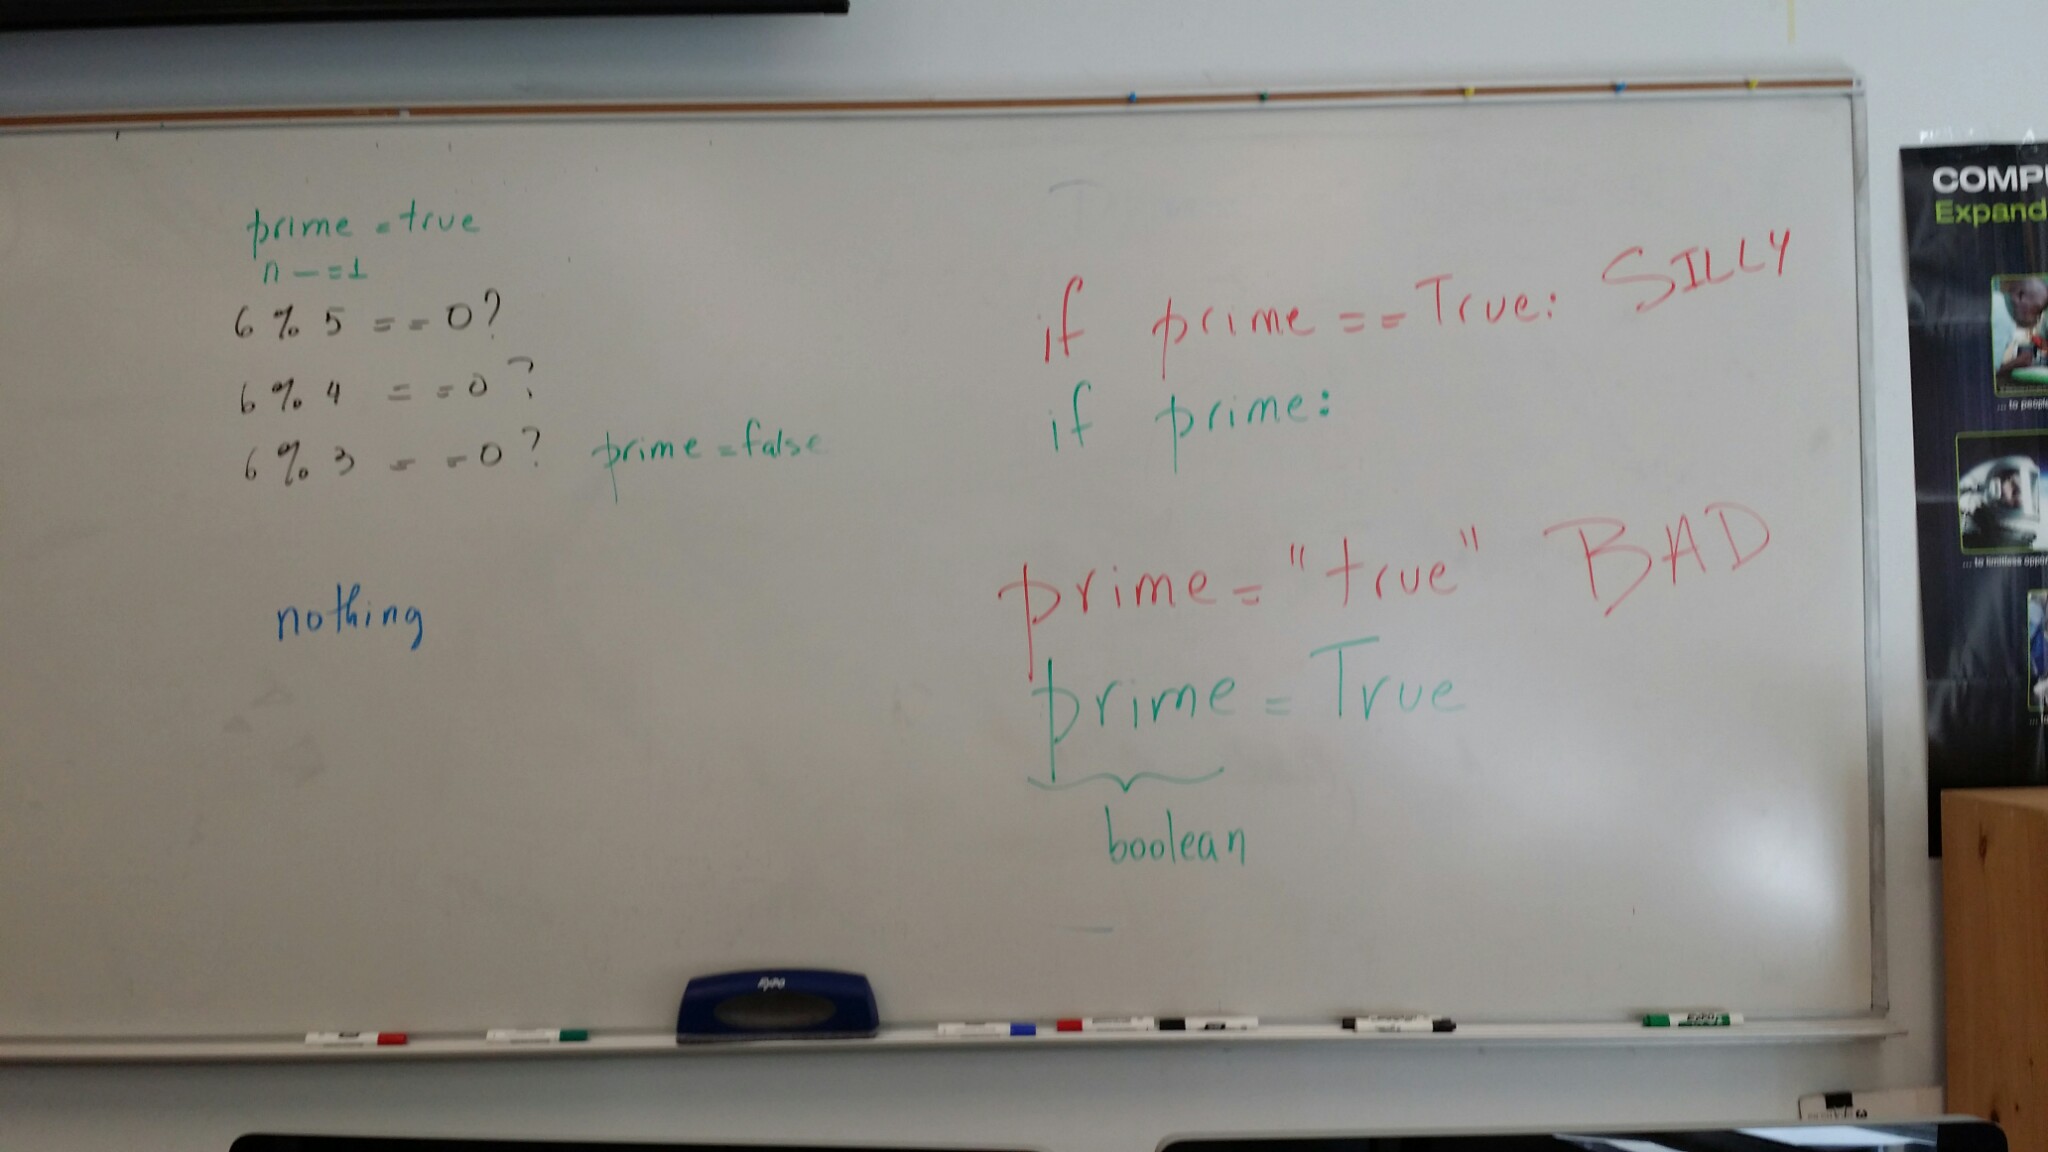 prime = true
n -= 1
6 % 5 == 0?
6 % 4 == 0?
6 % 3 == 0? prime = false
nothing
if prime == True: SILLY
if prime:
prime = "true" BAD
prime = True
boolean
COMPU
Expand
... to people
... to limitless oppor
expo